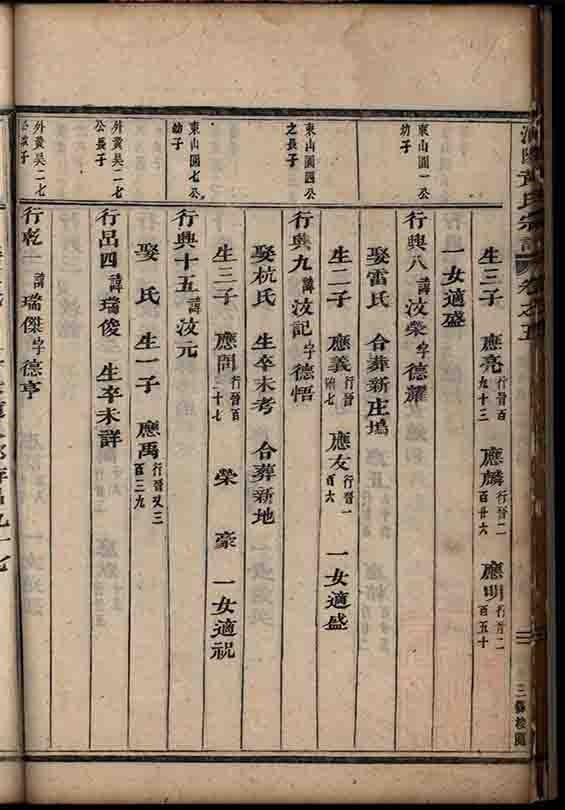 黃氏宗譜 卷之五
三槐校閱
生三子 應亮行晉百九十三 應麟行晉二百廿六 應明行晉二百五十
一女適盛
東山園一公幼子
行興八諱汝榮字德耀
娶雷氏 合葬新庄塢
生二子 應義行晉 應友行晉一百六 一女適盛
東山園四公之長子
行興九諱汝記字德悟
娶杭氏 生卒未考 合葬新地
生三子 應問行晉百三十七 榮 豪 一女適祝
東山園七公幼子
行興十五諱汝元
娶 氏 生一子 應禹行晉又三百三九
外黃吳二七公長子
行呂四諱瑞俊 生卒未詳
外黃吳二七
行乾一諱瑞傑字德亨